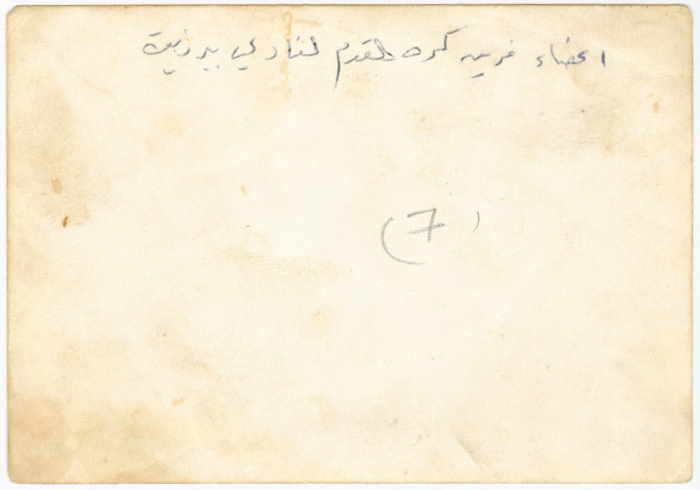 اعضاء فريق كرة القدم لنادي بيرزيت
(7)